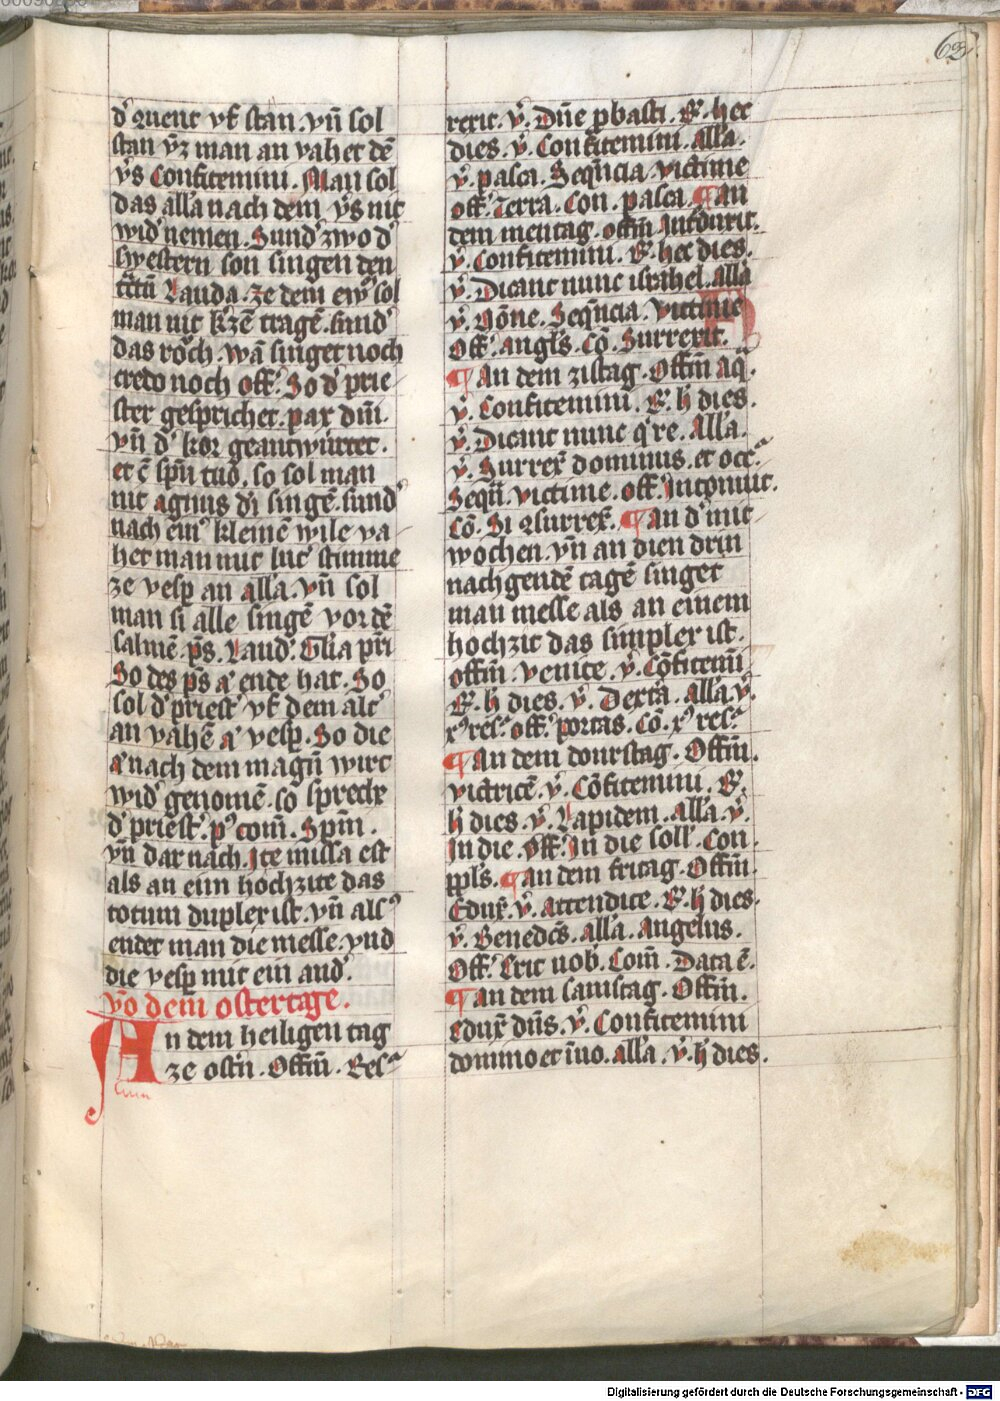 63
dˀ quent vf stan. vn̄ sol
stan v̄z man an vahet dē
v̓s Confitemini. Man sol
das all̓a nach dem v̓s nit
widˀ nemen. Sundˀ zwo dˀ
swestern son singen den
tc̄tū Lauda. ze dem ewˀ sol
man nit k̓zē tragē. sundˀ
das rǒch. wā singet noch
credo noch off̓. So dˀ prie
ster gesprichet. pax dn̄i.
vn̄ dˀ kor geantwúrtet.
et c̄ sp̄u tuo. so sol man
nit agnus di singē. sundˀ
nach einˀ kleinē wile va
het man mit lut̓ stimme
ze vesp̓ an all̓a. vn̄ sol
man si alle singē vor dē
salmē. p̄s. Laudˀ. Gl̓ia pr̄i
So des p̄s aˀ ende hat. So
sol dˀ priestˀ vf dem altˀ
an vahē aˀ vesp̓. So die
aˀ nach dem magn̄ wirt
widˀ genomē. so sprech
dˀ priestˀ. pˀ com̄. Sp̄m.
vn̄ dar nach. Ite missa est
als an eim hochzite das
totum duplex ist. vn̄ alsˀ
endet man die messe. vnd
die vesp̓ mit ein andˀ.
vō dem ostertage.
An dem heiligen tag
ze ostn̓. Offm̄. Resˀ
rexit. v̓. Dn̄e p̱basti. R̓. hec
dies. v̓. Confitemini. all̓a.
v̓. pasca. Seqn̄cia. victime
off̓. Terra. Con. pasca. ¶ An
dem mentag. offm̄ Introduxit.
v̓. Confitemini. R̓. hec dies.
v̓. Dicant nunc israhel. all̓a
v̓. Nōne. Seqn̄cia. victime
Off̓. angl̓s. Cō. Surrexit.
¶ An dem zistag. Offm̄ aq̄.
v̓. Confitemini. R̓. h̄ dies.
v̓. Dicant nunc q̓ re. all̓a.
v̓. Surrex̓ dominus. et occˀ.
Seqn̄. victime. off̓. Intonuit.
Cō. Si ꝯsurrex̓. ¶ An dˀ mit
wochen. vn̄ an dien drin
nachgendē tagē singet
man messe als an einem
hochzit das simplex ist.
offm̄. venite. v̓. Cōfitem̄i
R̓. h̄ dies. v̓. Dextˀa. all̓a. v̓.
xˀ resˀ. off̓. portas. Cō. xˀ resˀ.
¶ An dem donrstag. Offm̄.
victricē. v̓. Cōfitemini. R̓.
h̄ dies. v̓. Lapidem. all̓a. v̓.
In die. Off̓. In die soll̓. Con
ppl̓s. ¶ an dem fritag. Offm̄.
Edux̓. v̓. attendite. R̓. h̄ dies.
v̓. Benedc̄s. all̓a. angelus.
Off̓. Erit uob̓. Com̄. Data ē.
¶ an dem samstag. Offm̄.
eduxˀ dn̄s. v̓. Confitemini
domino et inuo. all̓a. v̓. h̄ dies.
Digitalisierung gefördert durch die Deutsche Forschungsgemeinschaft - DFG